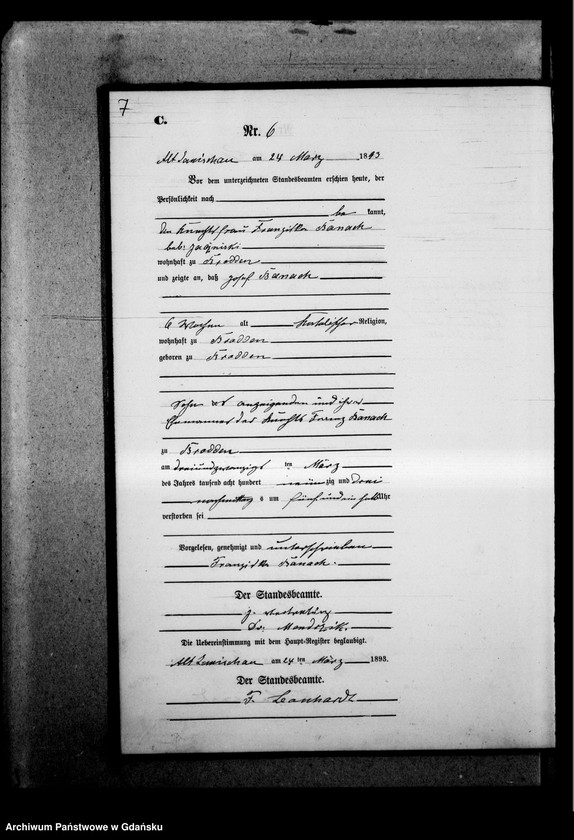 7
C.
Nr. 6
Alt Janischau am 24 März 1893
Vor dem unterzeichneten Standesbeamten erschien heute, der
Persönlichkeit nach
be kannt,
die Knechtsfrau Franziska Banach
geb:
wohnhaft zu Brodden
und zeigte an, daß Josef Banach
6 Wochen alt katholischer Religion,
wohnhaft zu Brodden
geboren zu Brodden
Sohn der anzeigenden und ihres
Ehemannes des Knechts Franz Banach
zu Brodden
am dreiundzwanzigsten März
des Jahres tausend acht hundert neunzig und drei
nachmittags um fünf und ein halb Uhr
verstorben sei
Vorgelesen, genehmigt und unterschrieben
Franziska Banach.
Der Standesbeamte.
J. Vertretung
Die Uebereinstimmung mit dem Haupt-Register beglaubigt.
Alt Janischau am 24 ten März 1893.
Der Standesbeamte.
F. Leonhardt
Archiwum Państwowe w Gdańsku